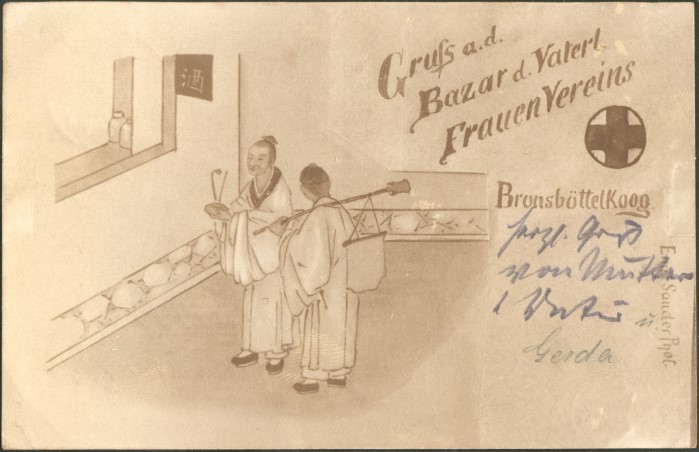 酒
Gruss a.d.
Bazar d. Vaterl.
FrauenVereins
BrunsbüttelKoog.
herzl. Gruß
von Mutter
Vater u.
Gerda
Sander Phot.